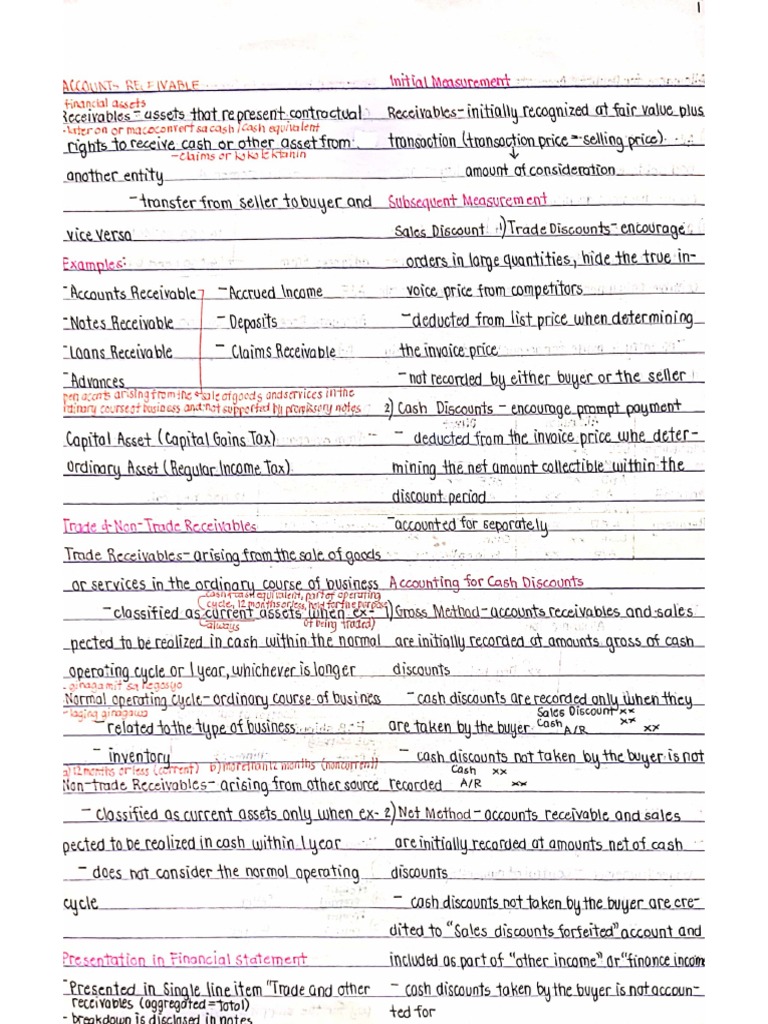 1
ACCOUNTS RECEIVABLE
financial assets
Receivables - assets that represent contractual
- later on or macoconvert sa cash/cash equivalent
rights to receive cash or other asset from
- claims or kokolektahin
another entity
- transfer from seller to buyer and
vice versa
Examples:
- Accounts Receivable - Accrued Income
- Notes Receivable - Deposits
- Loans Receivable - Claims Receivable
- Advances
open accnts arising from the sale of goods and services in the
ordinary course of business and not supported by promissory notes
Capital Asset (Capital Gains Tax)
Ordinary Asset (Regular Income Tax)
Trade & Non-Trade Receivables
Trade Receivables - arising from the sale of goods
or services in the ordinary course of business
cash & cash equivalent, part of operating
cycle, 12 months or less, held for the purpose
- classified as current assets (when ex-
always of being traded)
pected to be realized in cash within the normal
operating cycle or 1 year, whichever is longer
- ginagamit sa negosyo
Normal operating cycle - ordinary course of business
- laging ginagawa
- related to the type of business
- inventory
a) 12 months or less (current) b) more than 12 months (noncurrent)
Non-trade Receivables - arising from other source
- classified as current assets only when ex-
pected to be realized in cash within 1 year
- does not consider the normal operating
cycle
Presentation in Financial Statement
- Presented in Single line item "Trade and other
receivables (aggregated = total)
- breakdown is disclosed in notes
Initial Measurement
Receivables - initially recognized at fair value plus
transaction (transaction price = selling price).
↓
amount of consideration
Subsequent Measurement
Sales Discount 1) Trade Discounts - encourage
orders in large quantities, hide the true in-
voice price from competitors
- deducted from list price when determining
the invoice price
- not recorded by either buyer or the seller
2) Cash Discounts - encourage prompt payment
- deducted from the invoice price whe deter-
mining the net amount collectible within the
discount period
- accounted for separately
Accounting for Cash Discounts
1) Gross Method - accounts receivables and sales
are initially recorded at amounts gross of cash
discounts
- cash discounts are recorded only when they
Sales Discount xx
are taken by the buyer Cash xx
A/R xx
- cash discounts not taken by the buyer is not
Cash xx
recorded A/R xx
2) Net Method - accounts receivable and sales
are initially recorded at amounts net of cash
discounts
- cash discounts not taken by the buyer are cre-
dited to "Sales discounts forfeited" account and
included as part of "other income" or "finance income
- cash discounts taken by the buyer is not accoun-
ted for